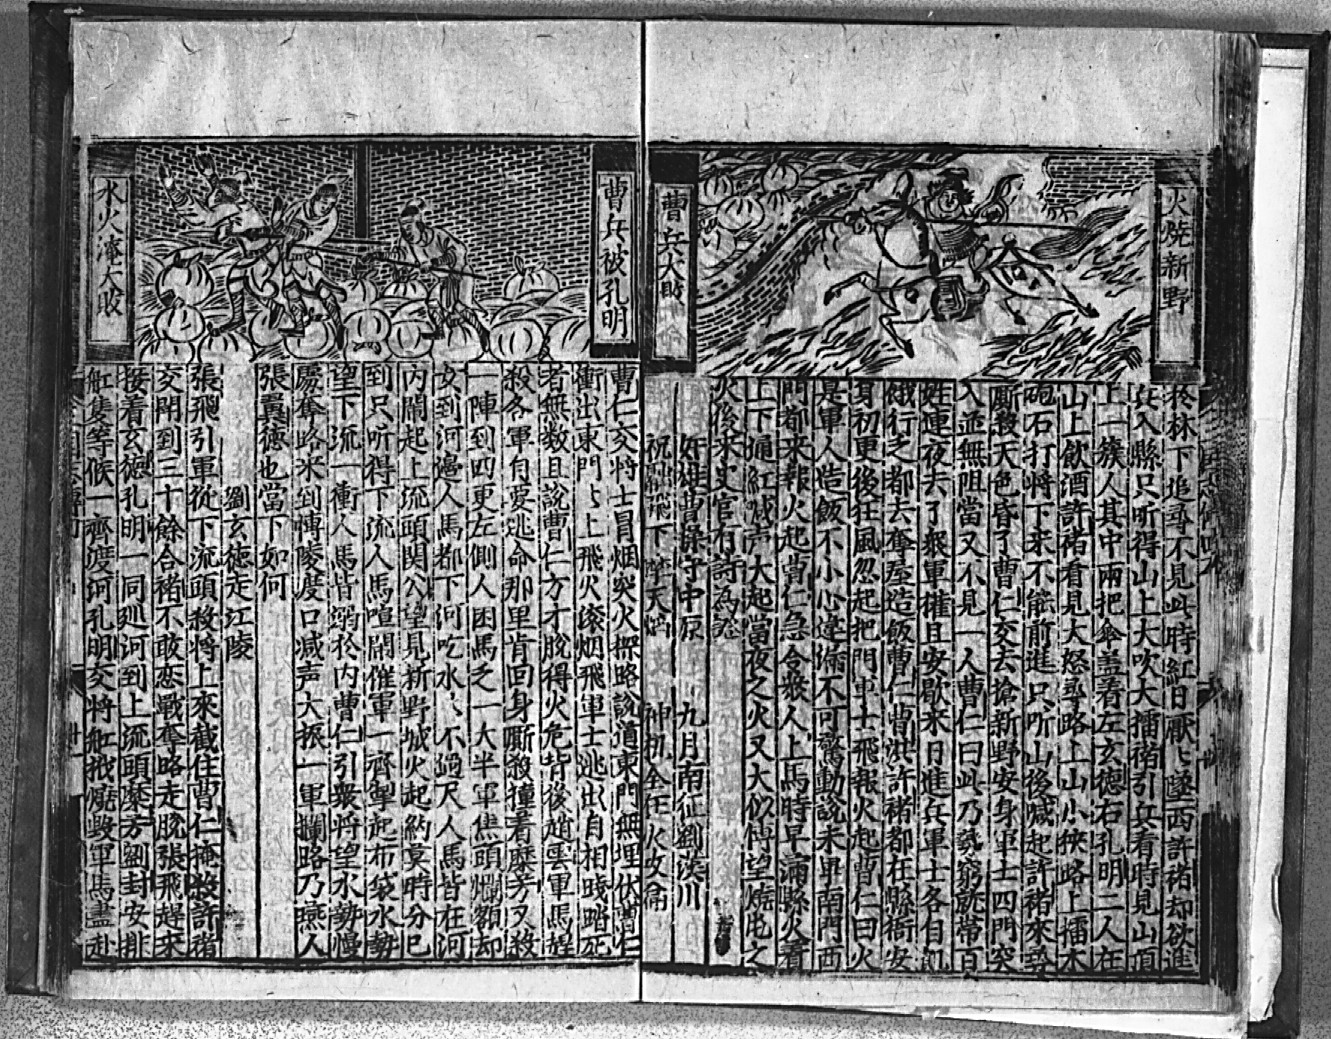 火燒新野
曹兵大敗
於林下追尋不見此時紅日厭厭墜西許褚却欲進
兵入縣只听得山上大吹大擂褚引兵看時見山頂
上一簇人其中兩把傘盖着左玄德右孔明二人在
山上飲酒許褚看見大怒尋路上山小狹路上擂木
砲石打將下来不能前進只听山後喊起許褚來尋
厮殺天色昏了曹仁交去搶新野安身軍士四門突
入並無阻當又不見一人曹仁曰此乃㔟窮就帶百
姓連夜去了眾軍權且安歇來日進兵軍士各自飢
餓行乏都去奪屋造飯曹仁曹洪許褚都在縣衙安
身初更後狂風忽起把門軍士飛報火起曹仁曰火
是軍人造飯不小心遺漏不可驚動說未畢南門西
門都来報火起曹仁急令發人上馬時早滿縣火着
上下通紅喊声大起當夜之火又大似博望燒屯之
火後來史官有詩為証
奸雄曹操守中原
九月南征劉漢川
曹兵被孔明
水火淹大敗
曹仁交將士冒烟突火探路說道東門無埋伏曹仁
衝出東門上飛火滚烟飛軍士逃出自相踐踏死
者無数且說曹仁方才脫得火危背後趙雲軍馬趕
殺各軍自要逃命那里肯回身厮殺撞着糜芳又殺
一陣到四更左側人困馬乏一大半軍焦頭爛額却
好到河邊人馬都下河吃水不過尺人馬皆在河
内閙起上流頭関公望見新野城火起約莫時分已
到只听得下流人馬喧閙催軍一齊掣起布袋水勢
望下流一衝人馬皆溺於内曹仁引眾將望水勢慢
處奪路來到博陵度口喊声大振一軍攔路乃燕人
張翼德也當下如何
劉玄德走江陵
張飛引軍從下流頭殺將上來截住曹仁掩殺許褚
交閗到三十餘合褚不敢恋戰奪路走脫張飛趕来
接着玄德孔明一同廵河到上流頭糜芳劉封安排
舡隻等候一齊渡河孔明交將舡栰燒毀軍馬盡赴